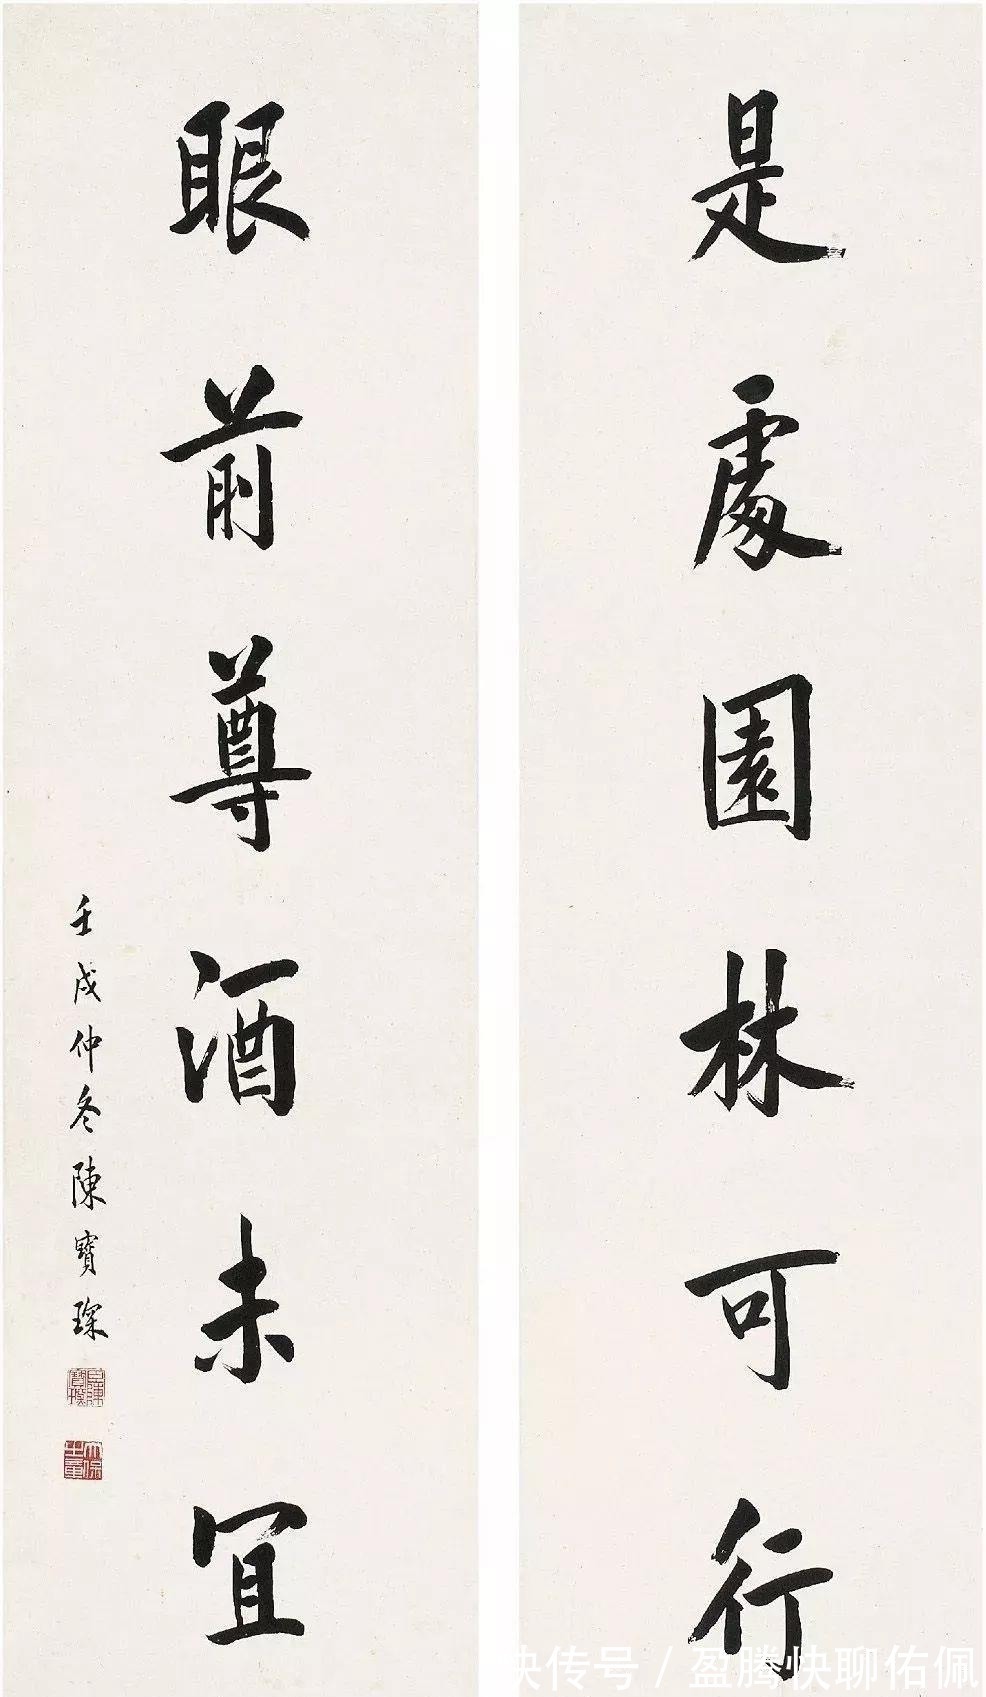 是處園林可行
眼前尊酒未宜
壬戌仲冬陳寶琛
快传号/盈腾快聊佑佩